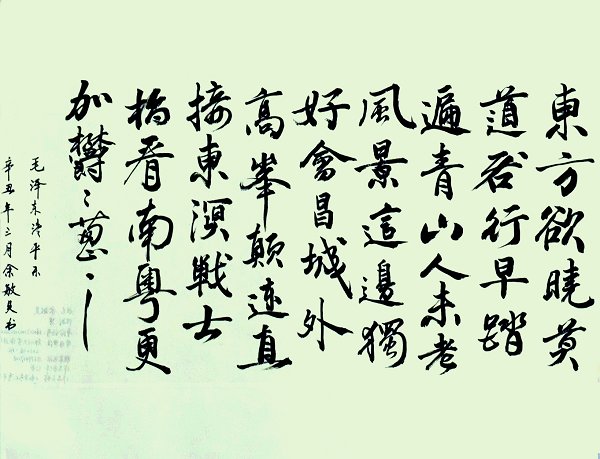 東方欲曉莫
道君行早踏
遍青山人未老
風景這邊獨
好會昌城外
高峯顛連直
接東溟戦士
指看南粵更
加欝〻葱〻
毛泽东清平乐
辛丑年三月余敏良书